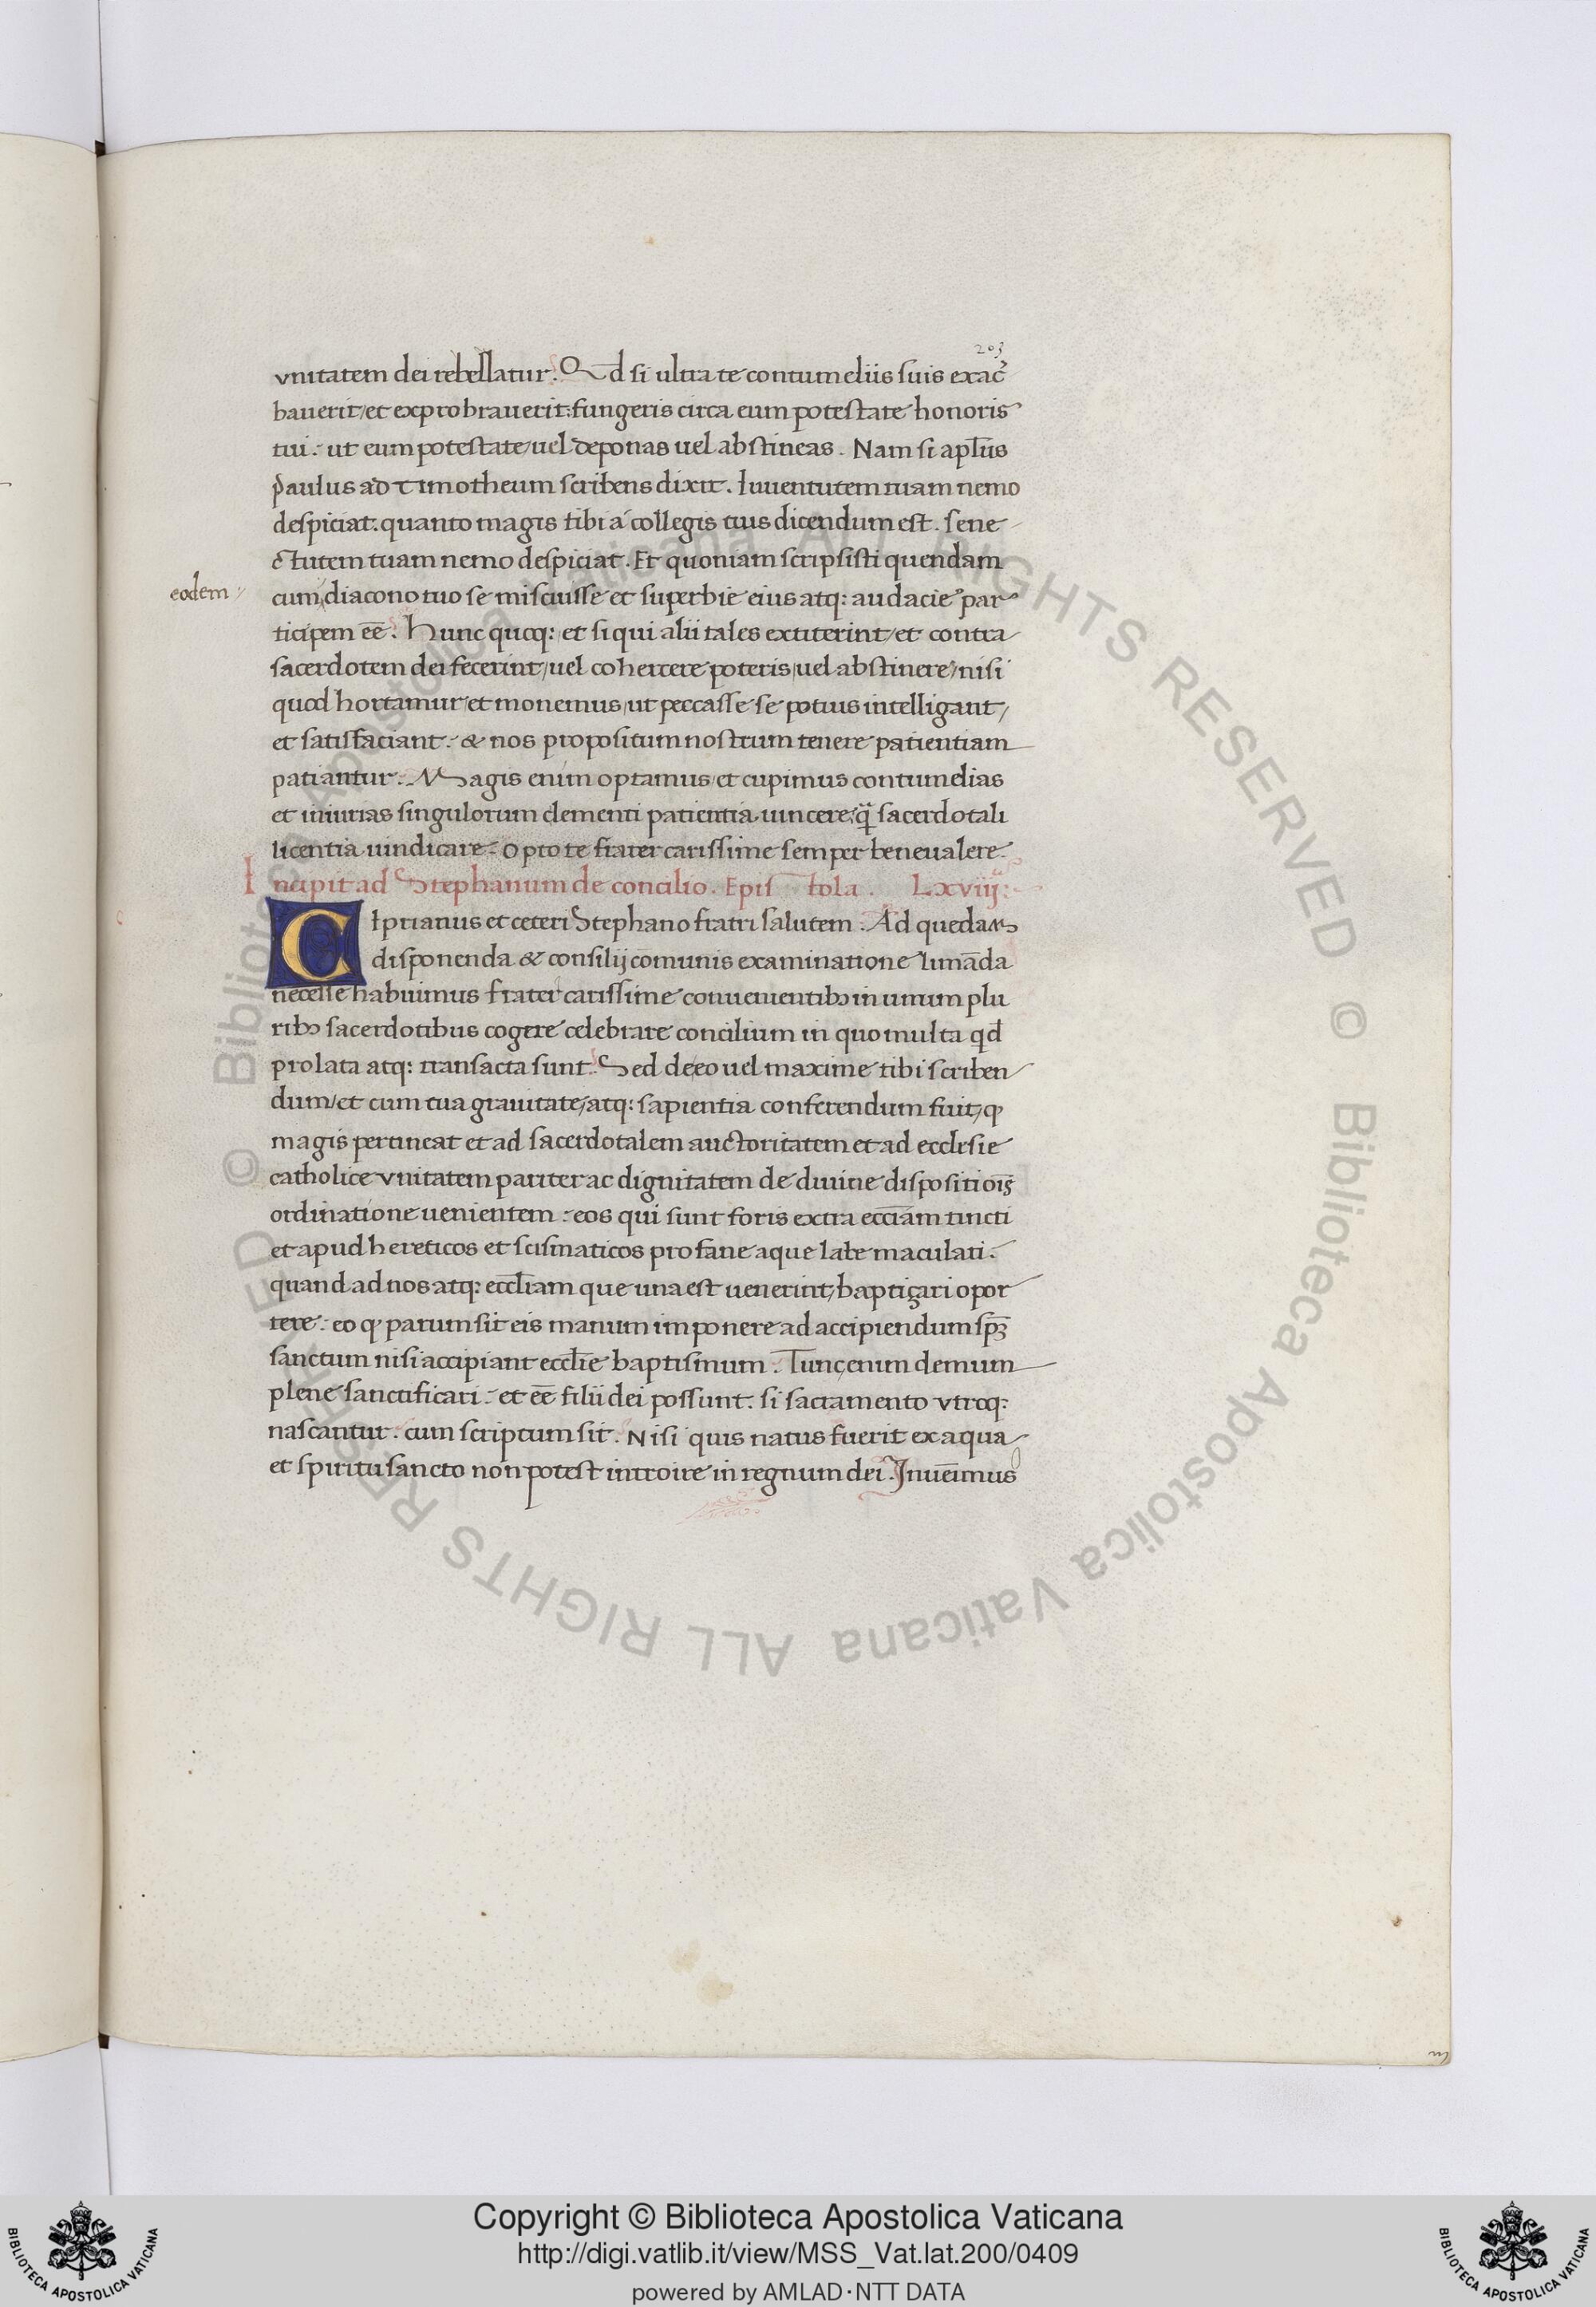 203
vnitatem dei rebellatur. Qd si ultra te contumeliis suis exac
bauerit/et exprobrauerit:fungeris circa eum potestate honoris
tui: ut eum potestate/uel deponas uel abstineas. Nam si apl̅us
Paulus ad Timotheum scribens dixit. Iuuentutem tuam nemo
despiciat. quanto magis tibi a collegis tuis dicendum est. sene
ctutem tuam nemo despiciat. Et quoniam scripsisti quendam
eodem
cum diacono tuo se miscuisse et superbie eius atq: audacie par
ticipem ee̅. Hunc quoq: et si qui alii tales extiterint/et contra
sacerdotem dei fecerint/uel cohercere poteris/uel abstinere/nisi
quod hortamur/et monemus/ut peccasse se potius intelligant/
et satisfaciant: & nos propositum nostrum tenere patientiam
patiantur. Magis enim optamus et cupimus contumelias
et iniurias singulorum clementi patientia uincere/q̅ sacerdotali
licentia uindicare. Opto te frater carissime semper bene ualere.
Incipit ad Stephanum de concilio. Epistola. Lxviiij.
Ciprianus et ceteri Stephano fratri salutem. Ad quedam
disponenda & consilij co̅munis examinatione lima̅da
necesse habuimus frater carissime conuenientib; in unum plu
rib; sacerdotibus cogere celebrare concilium in quo multa qd̅
prolata atq: transacta sunt. Sed de eo uel maxime tibi scriben
dum/et cum tua grauitate/atq: sapientia conferendum fuit/ꝙ
magis pertineat et ad sacerdotalem auctoritatem et ad ecclesie
catholice vnitatem pariter ac dignitatem de diuine dispositio̅is
ordinatione uenientem: eos qui sunt foris extra eccl̅iam tincti
et apud hereticos et scismaticos profane aque labe maculati.
quand ad nos atq: eccl̅iam que una est uenerint/baptiçari opor
tere: eo ꝙ parum sit eis manum imponere ad accipiendum sp̅m
sanctum nisi accipiant eccl̅ie baptismum. Tunc enim demum
plene sanctificari: et ee̅ filii dei possunt. si sacramento vtroq:
nascantur. cum scriptum sit. Nisi quis natus fuerit ex aqua
et spiritu sancto non potest introire in regnum dei. Inueni̅mus
Copyright © Biblioteca Apostolica Vaticana
http://digi.vatlib.it/view/MSS_Vat.lat.200/0409
powered by AMLAD·NTT DATA
BIBLIOTECA APOSTOLICA VATICANA
BIBLIOTECA APOSTOLICA VATICANA
© Biblioteca Apostolica Vaticana ALL RIGHTS RESERVED
© Biblioteca Apostolica Vaticana ALL RIGHTS RESERVED